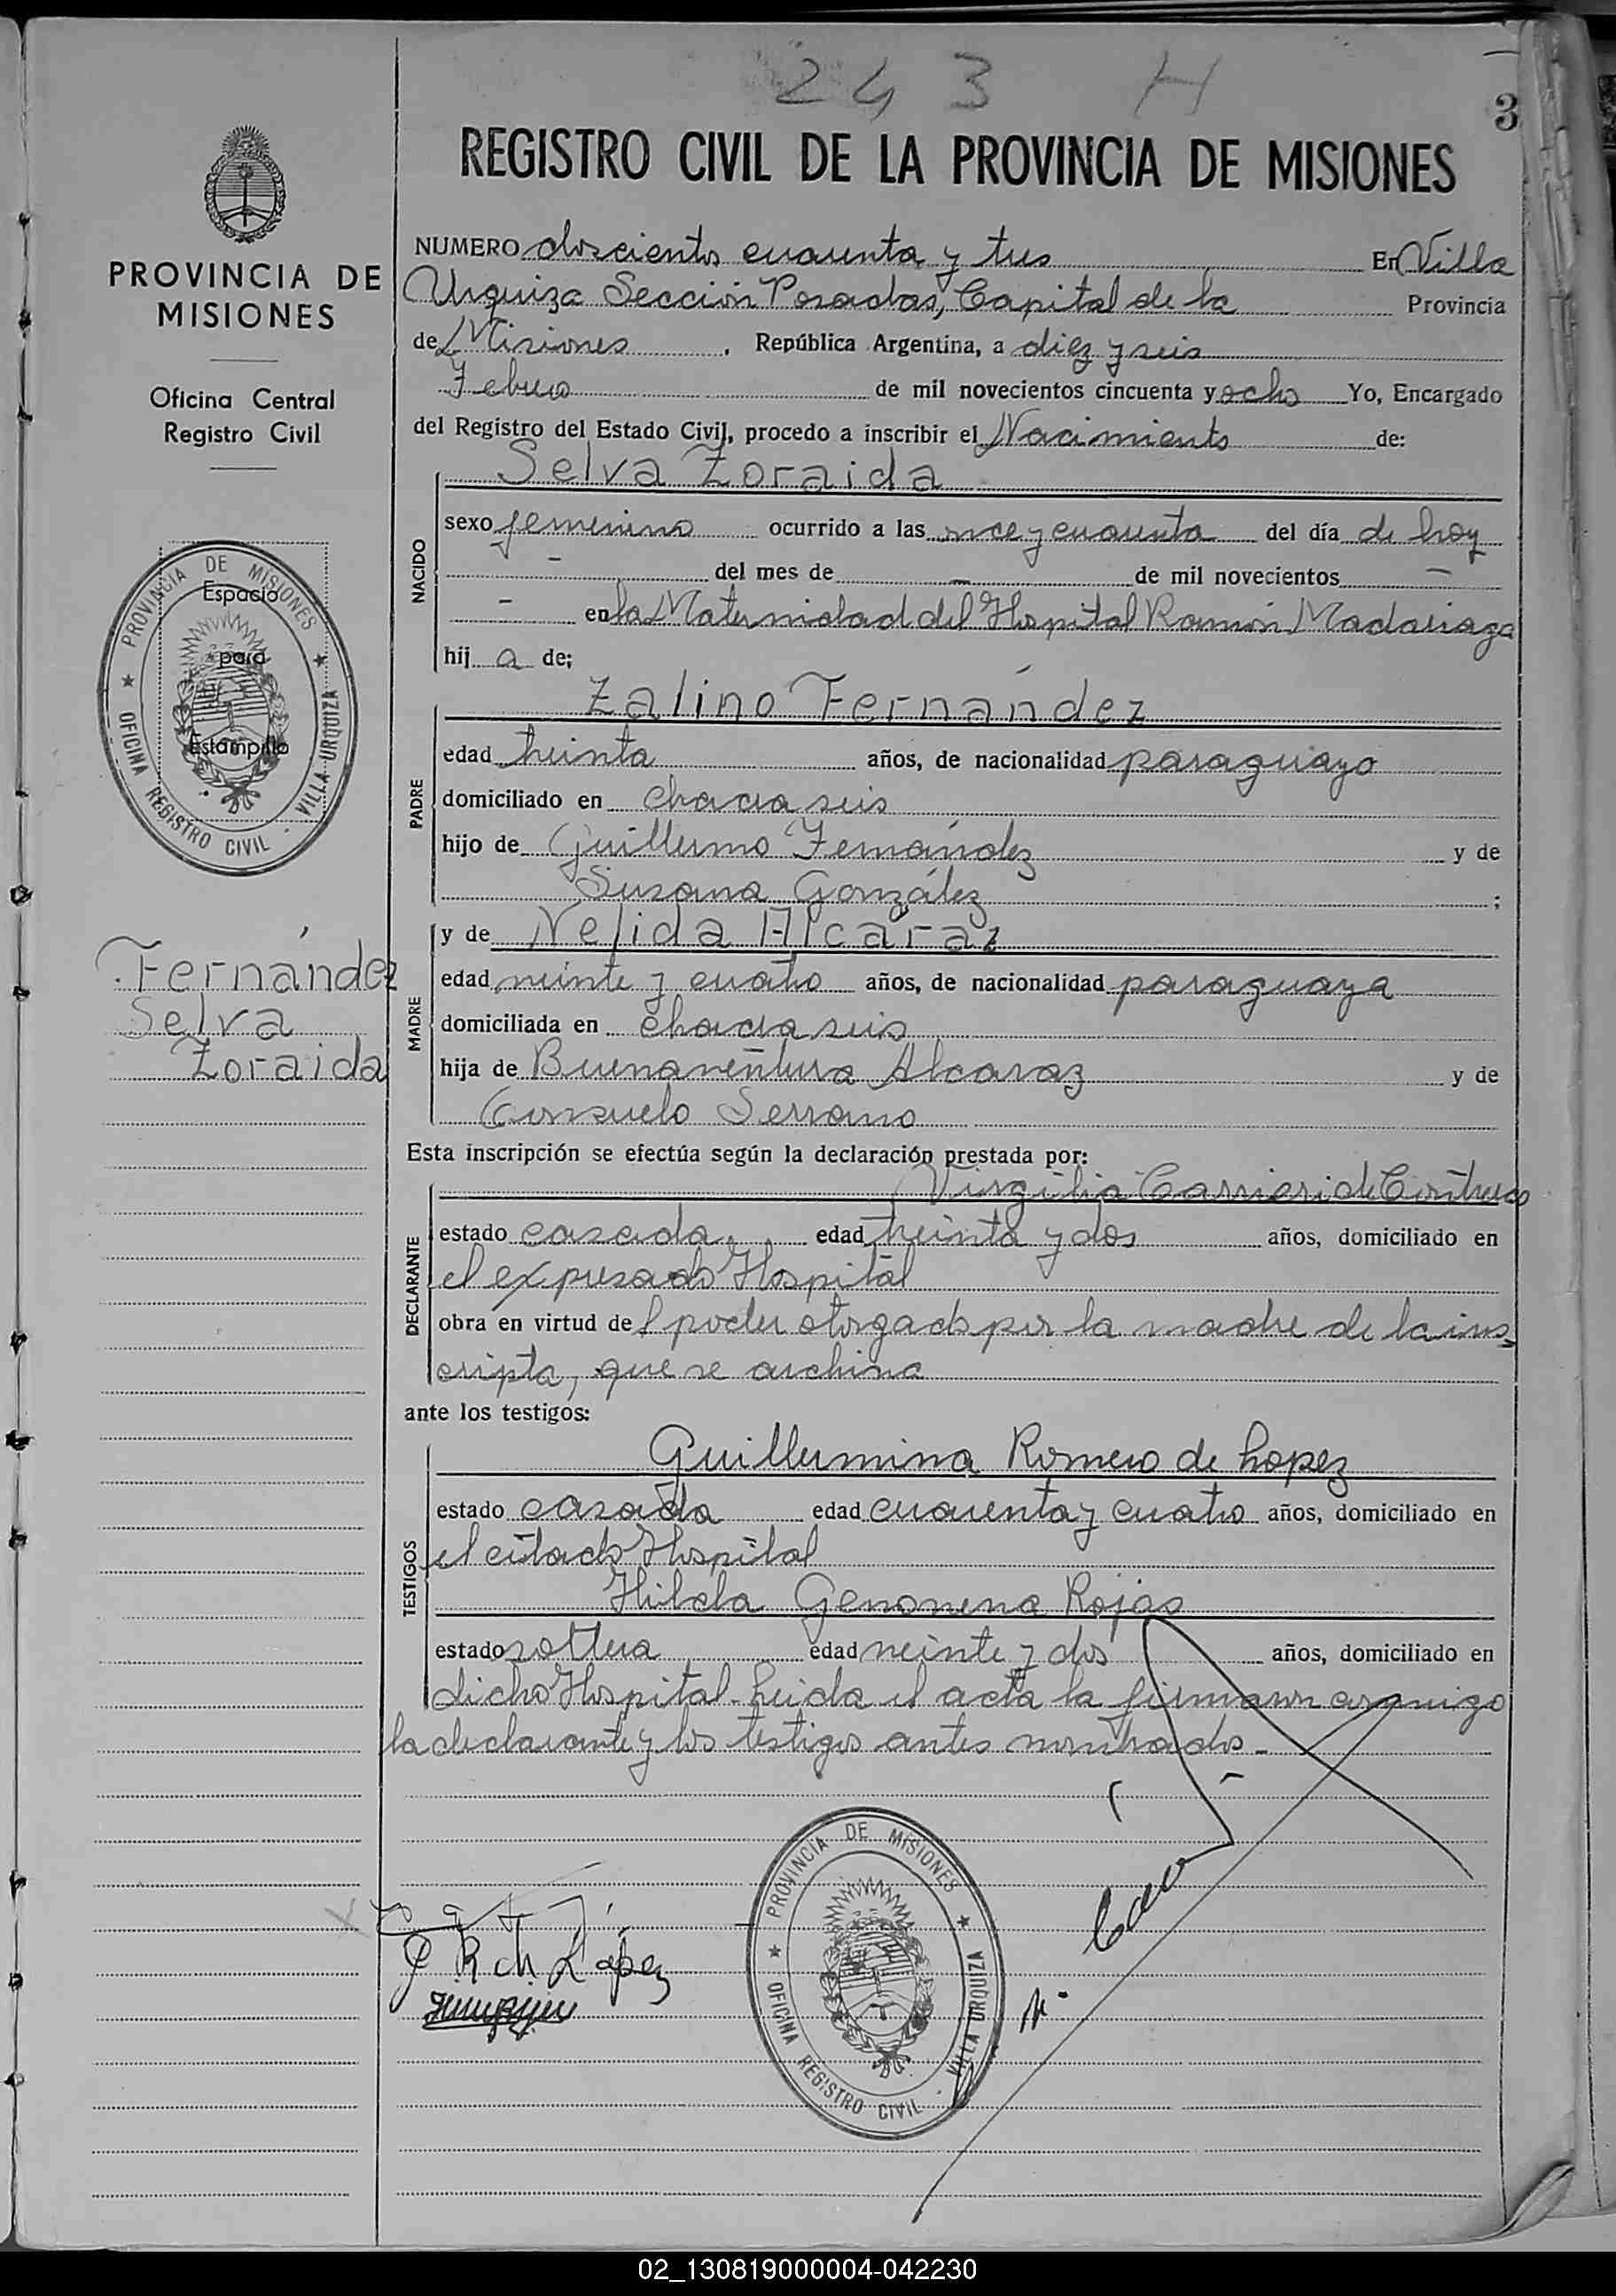 243 H
3
REGISTRO CIVIL DE LA PROVINCIA DE MISIONES
PROVINCIA DE
MISIONES
Oficina Central
Registro Civil
PROVINCIA DE MISIONES
OFICINA REGISTRO CIVIL - VILLA URQUIZA
Espacio
para
Estampilla
Fernández
Selva
Zoraida
NUMERO doscientos cuarenta y tres En Villa
Urquiza Sección Posadas, Capital de la Provincia
de Misiones, República Argentina, a diez y seis
Febrero de mil novecientos cincuenta y ocho Yo, Encargado
del Registro del Estado Civil, procedo a inscribir el Nacimiento de:
NACIDO
Selva Zoraida
sexo femenino ocurrido a las once y cuarenta del día de hoy
- del mes de - de mil novecientos -
- en la Maternidad del Hospital Ramón Madariaga
hij a de;
PADRE
Zalino Fernández
edad treinta años, de nacionalidad paraguayo
domiciliado en chacra seis
hijo de Guillermo Fernández y de
Susana González ;
MADRE
y de Nelida Alcaráz
edad veinte y cuatro años, de nacionalidad paraguaya
domiciliada en chacra seis
hija de Buenaventura Alcaraz y de
Consuelo Serrano
Esta inscripción se efectúa según la declaración prestada por:
DECLARANTE
Virgilia Carrieri de
estado casada edad treinta y dos años, domiciliado en
el expresado Hospital
obra en virtud de l poder otorgado por la madre de la ins-
cripta, que se archiva
ante los testigos:
TESTIGOS
Guillermina Romero de Lopez
estado casada edad cuarenta y cuatro años, domiciliado en
el citado Hospital
Hilda Genoveva Rojas
estado soltera edad veinte y dos años, domiciliado en
dicho Hospital. Leida el acta la firmaron conmigo
la declarante y los testigos antes nombrados.-
G R de López
PROVINCIA DE MISIONES
OFICINA REGISTRO CIVIL - VILLA URQUIZA
02_130819000004-042230